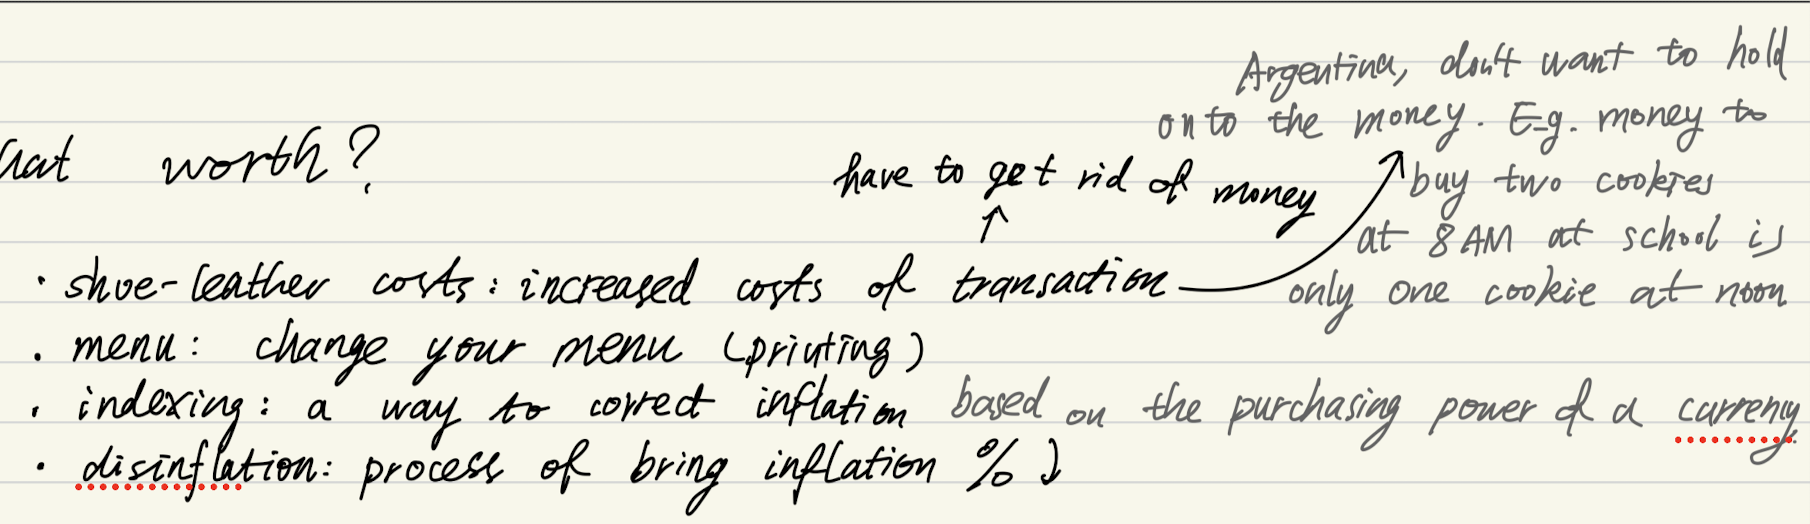 Argentina, don't want to hold
onto the money. E.g. money to
hat worth?
have to get rid of money
buy two cookies
at 8 AM at school is
only one cookie at noon
↑
· shoe-leather costs: increased costs of transaction
· menu: change your menu (printing)
· indexing: a way to correct inflation based on the purchasing power of a currency
· disinflation: process of bring inflation % ↓